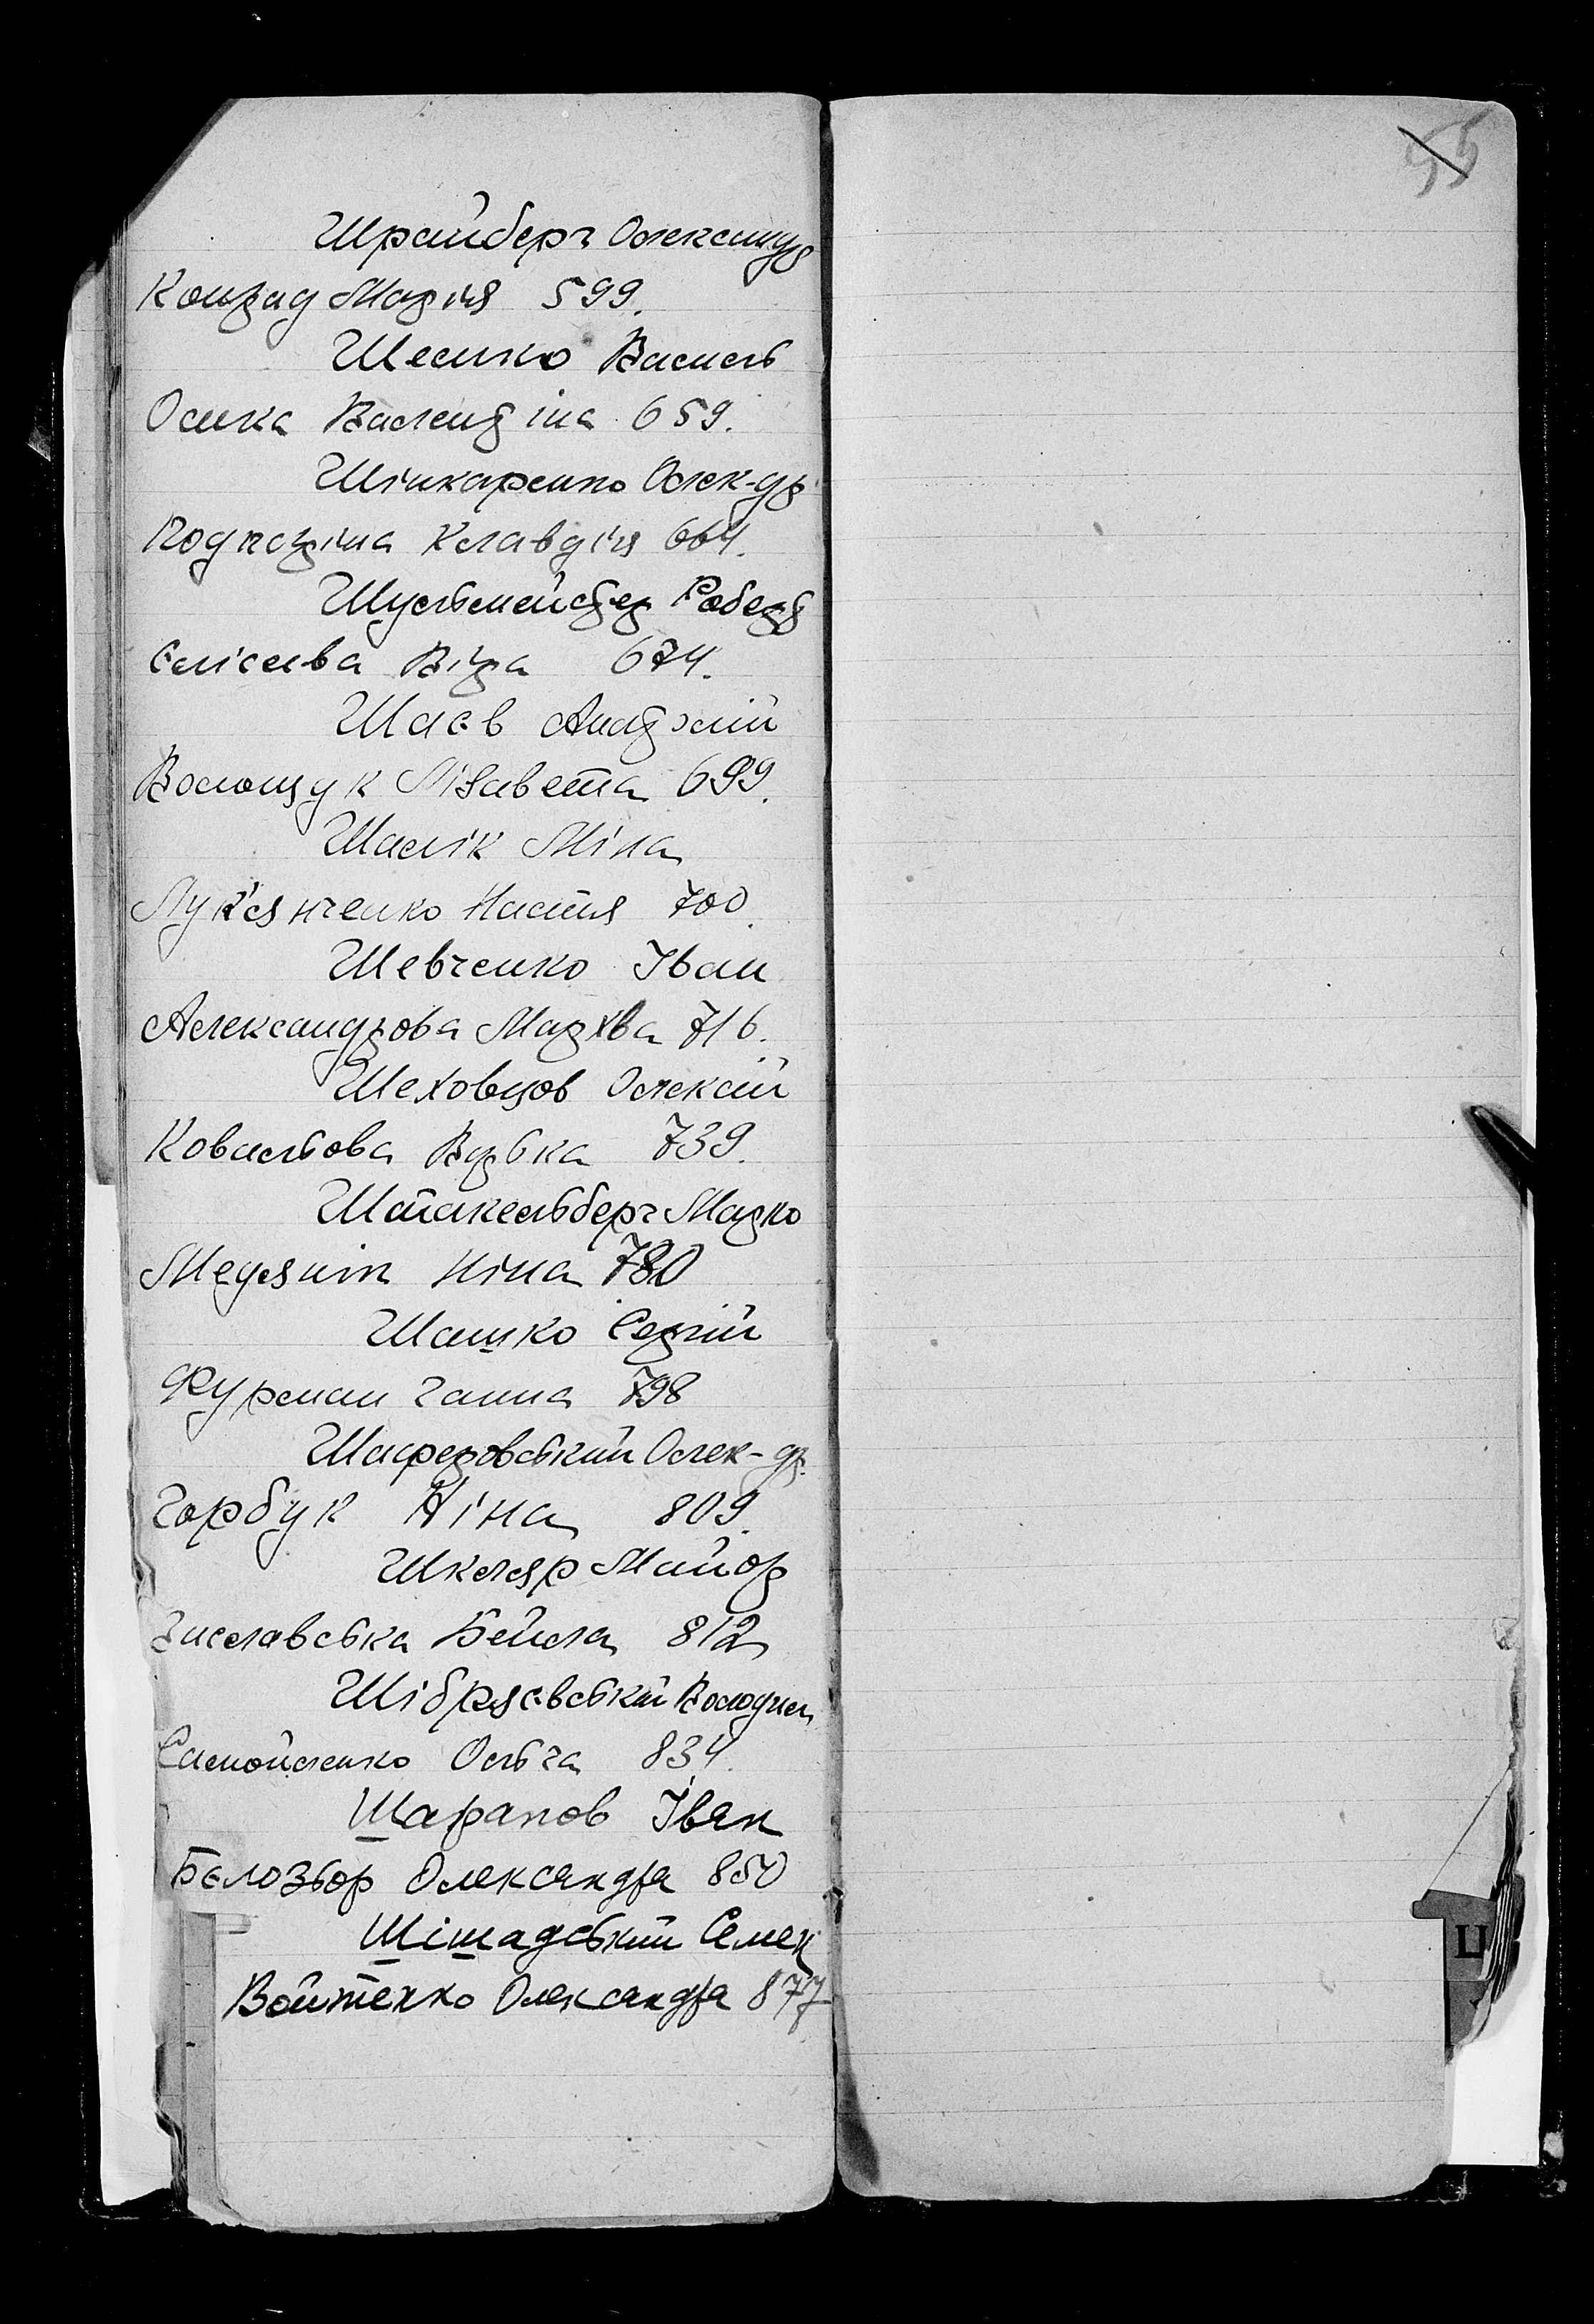 Шрайберг Олександр
Конрад Марія 599.
Шеенко Василь
Осика Валентіна 659.
Шінкаренко Олек-др
Подпоріна Клавдія 664.
Шульмейстер Роберт
Єлісеєва Віра 674.
Шаєв Анатолій
Волощук Лізавета 699.
Шаслік Міна
Лук'янченко Настя 700.
Шевченко Іван
Александрова Мархва 716.
Шеховцов Олексій
Ковальова Вірка 739.
Штакельберг Марко
Медяник Ніна 780
Шашко Сергій
Фурман Ганна 798
Шаферовський Олек-др.
Горбук Ніна 809.
Шкляр Майор
Заславська Бейла 812
Шібряєвський Володим
Самойленко Ольга 834.
Шарапов Іван
Бєлозьор Олександра 850
Шішадський Семен
Войтенко Олександра 877
55
Ц